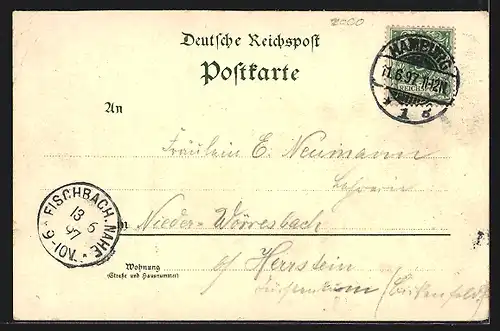 2000
Deutsche Reichspost
Postkarte
HAMBURG
11.6.97 11-12N
* 1 d
REICHSPOST
An
Fräulein E. Neumann
Lehrerin
in Nieder-Wörresbach
FISCHBACH, NAHE
13 6
97
6-10V.
Wohnung
(Straße und Hausnummer)
b/ Herrstein
Fürstentum (Birkenfeld)